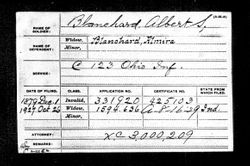 NAME OF SOLDIER: Blanchard Albert S.
NAME OF DEPENDENT: Widow, Blanchard, Elmira
Minor,
SERVICE: C 123 Ohio Inf.
DATE OF FILING. CLASS. APPLICATION NO. CERTIFICATE NO. STATE FROM WHICH FILED.
1879 Invalid, 331920 425103
1927 Oct 26 Widow, 1594626
Minor,
ATTORNEY: XC 3,000,209
REMARKS: